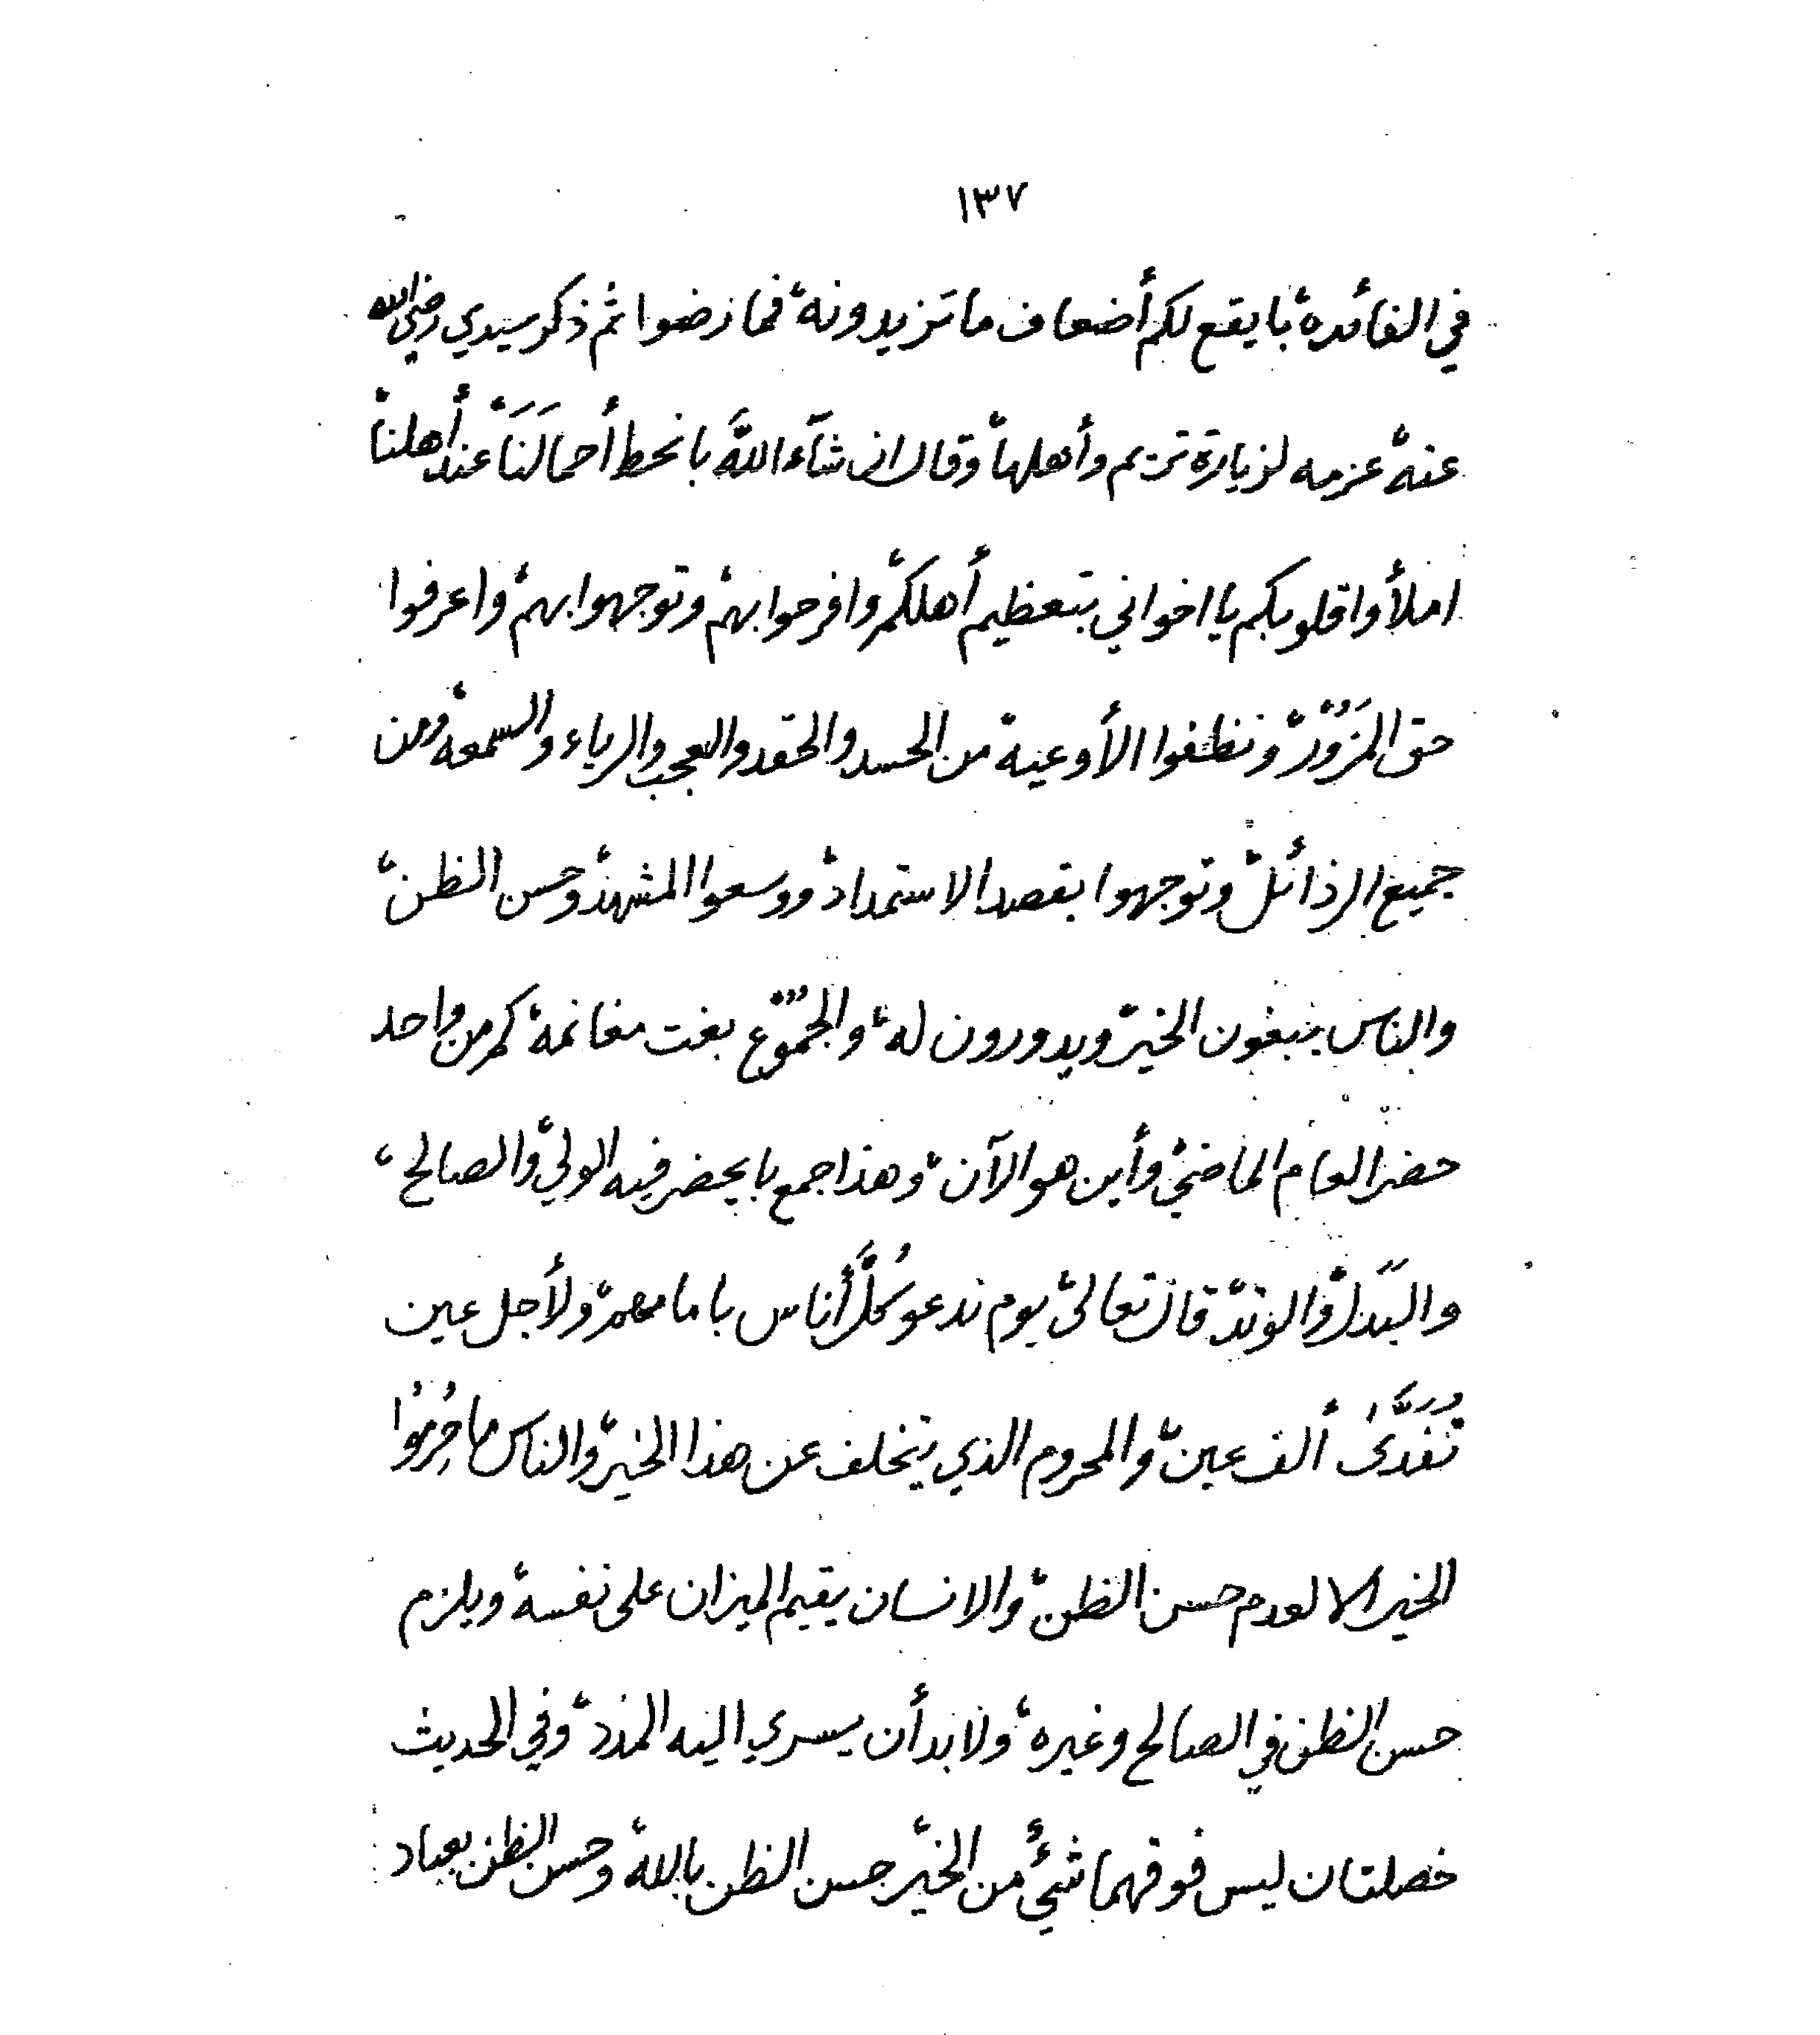 ١٣٧
في الفائدة، بايقع لكم أضعاف ما تزيدونه، فما رضوا، ثم ذكر سيدي رضي الله
عنه، عزمه لزيارة تريم وأهلها، وقال ان شآء اللَّه بانحط أحمالَنَا، عند أهلنا،
املأوا قلوبكم يا اخواني بتعظيم أهلكم، وافرحوا بهم، وتوجهوا بهم، واعرفوا
حق المَزُوْر، ونظفوا الأوعية من الحسد والحقد والعجب والرياء والسمعة، ومن
جميع الرذائل، وتوجهوا بقصد الاستمداد، ووسعوا المشهد، وحسن الظن،
والناس يبغون الخير، ويدورون له، والجُمُوْع بغت مغانمة، كم من واحد
حضر العام الماضي، وأين هو الآن، وهذا جمع بايحضر فيه الولي، والصالح،
والبَدَل، والوتد، قال تعالى، يوم ندعو كُلَّ أناس بامامهم، ولأجل عين
تُفَدَّىٰ ألف عين، والمحروم الذي يتخلف عن هذا الخير، والناس ما حُرِمُوا
الخير الا لعدم حسن الظن، والانسان يقيم الميزان على نفسه، ويلزم
حسن الظن في الصالح وغيره، ولابد أن يسري اليه المدد، وفي الحديث
خصلتان ليس فوقهما شيءٌ من الخير، حسن الظن بالله، وحسن الظن بعباد